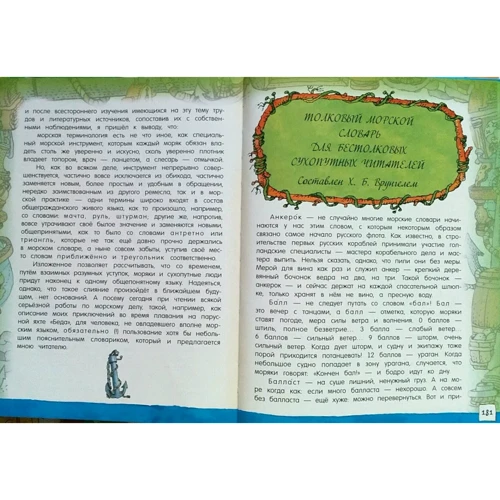 и после всестороннего изучения имеющихся на эту тему тру-
дов и литературных источников, сопоставив их с собствен-
ными наблюдениями, я пришёл к выводу, что:
морская терминология есть не что иное, как специаль-
ный морской инструмент, которым каждый моряк обязан вла-
деть столь же уверенно и искусно, сколь уверенно плотник
владеет топором, врач — ланцетом, а слесарь — отмычкой.
Но, как во всяком деле, инструмент непрерывно совер-
шенствуется, частично вовсе изживается из обихода, частично
заменяется новым, более простым и удобным в обращении,
нередко заимствованным из другого ремесла, так и в мор-
ской практике — одни термины широко входят в состав
общегражданского живого языка, как то произошло, например,
со словами: мачта, руль, штурман; другие же, напротив,
вовсе утрачивают своё былое значение и заменяются новыми,
общепринятыми, как то было со словами антретно или
триангль, которые не так ещё давно прочно держались
в морском словаре, а ныне совсем забыты, уступив своё мес-
то словам приближённо и треугольник соответственно.
Изложенное позволяет рассчитывать, что со временем,
путём взаимных разумных уступок, моряки и сухопутные люди
придут наконец к одному общепонятному языку. Надеяться,
однако, что такое слияние произойдёт в ближайшем будущ-
ем, нет оснований. А посему сегодня при чтении всякой
серьёзной работы по морскому делу, такой, например, как
описание моих приключений во время плавания на парус-
ной яхте «Беда», для человека, не овладевшего вполне мор-
ским языком, обязательно (!) пользование хотя бы неболь-
шим пояснительным словариком, который и предлагается
мною читателю.
ТОЛКОВЫЙ МОРСКОЙ
СЛОВАРЬ
ДЛЯ БЕСТОЛКОВЫХ
СУХОПУТНЫХ ЧИТАТЕЛЕЙ
Составлен Х. Б. Врунгелем
Анкеро́к — не случайно многие морские словари начи-
наются у нас этим словом, с которым некоторым образом
связано самое начало русского флота. Как известно, в стро-
ительстве первых русских кораблей принимали участие гол-
ландские специалисты — мастера корабельного дела и мас-
тера выпить. Нельзя сказать, однако, что пили они без меры.
Мерой для вина как раз и служил анкер — крепкий дере-
вянный бочонок ведра на два. Такой бочонок — анкер или
анкерок — и сейчас держат на каждой спасательной шлюп-
ке, только хранят в нём не вино, а пресную воду.
Балл — не следует путать со словом «бал»! Бал —
это вечер с танцами, а балл — отметка, которую моряки
ставят погоде, мера силы ветра и волнения. 0 баллов —
штиль, полное безветрие... 3 балла — слабый ветер...
6 баллов — сильный ветер... 9 баллов — шторм, очень
сильный ветер! Когда дует шторм, и судну и экипажу тоже
порой приходится потанцевать! 12 баллов — ураган. Когда
небольшое судно попадает в зону урагана, случается, что
моряки говорят: «Кончен бал!» — и бодро идут ко дну.
Балла́ст — на суше лишний, ненужный груз. А на мо-
ре когда как: если много балласта — нехорошо. А совсем
без балласта — ещё хуже: можно перевернуться. Вот и при-
181